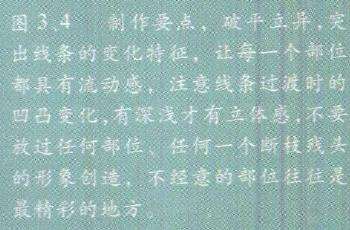 图 3、4　制作要点，破平立异，突
出线条的变化特征，让每一个部位
都具有流动感，注意线条过渡时的
凹凸变化，有深浅才有立体感，不要
放过任何部位、任何一个断枝残头
的形象创造，不经意的部位往往是
最精彩的地方。